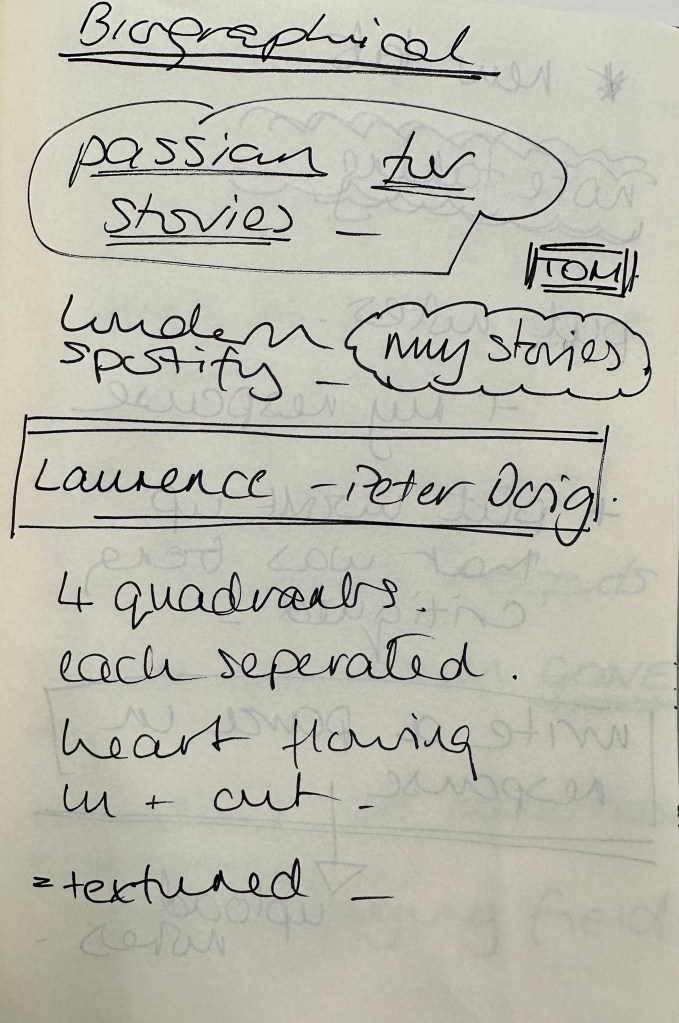 Biographical
passion for
stories –
TOM
London
spotify – my stories
Laurence – Peter Doig.
4 quadrants.
each seperated.
heart flowing
in + out –
= textured –